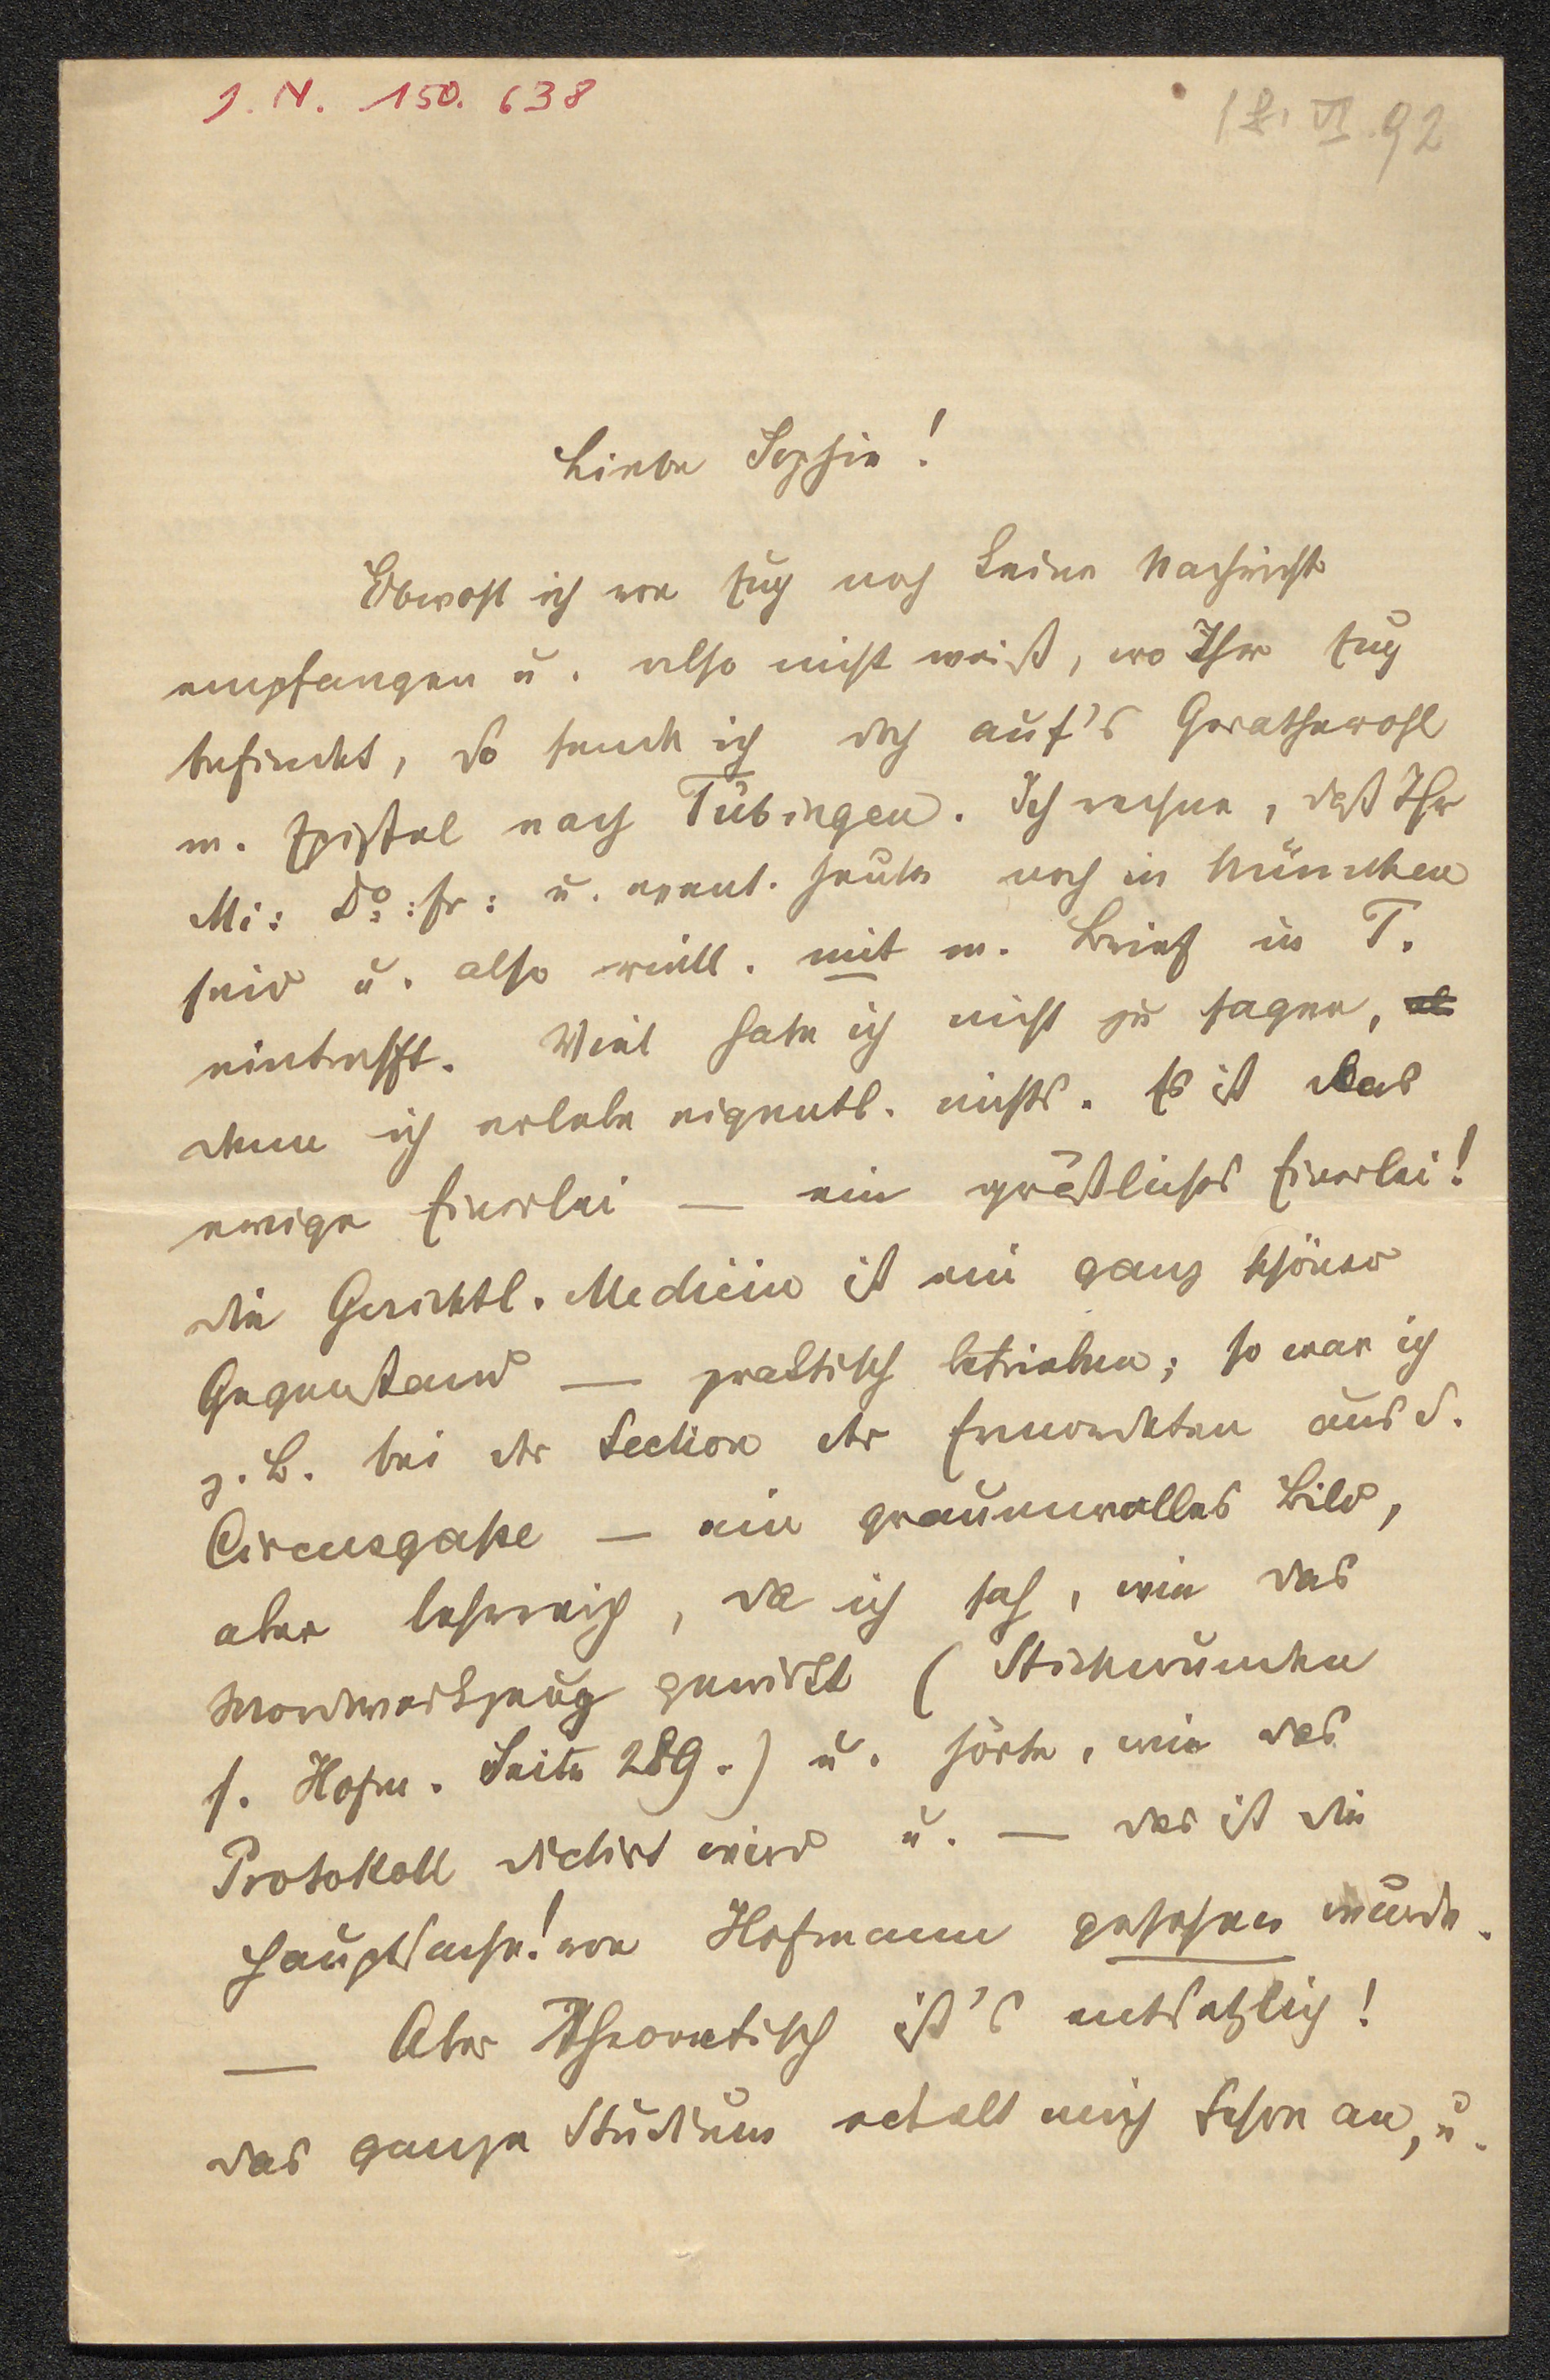 I. N. 150.638
18. VI. 92
Liebe Sophie!
Obwohl ich von Euch noch keine Nachricht
empfangen u. also nicht weiß, wo Ihr Euch
befindet, so sende ich doch auf's Gerathewohl
m. Epistel nach Tübingen. Ich rechne, daß Ihr
Mi: Do: Fr: u. event. heute noch in München
seid u. also vielleicht mit m. Brief in T.
eintrefft. Viel habe ich nicht zu sagen,
denn ich erlebe eigentl. nichts. Es ist das
ewige Einerlei — ein gräßliches Einerlei!
die Gerichtl. Medicin ist ein ganz schöner
Gegenstand — praktisch betrieben; so war ich
z. B. bei der Section der Ermordeten aus d.
Circusgaße — ein grauenvolles Bild,
aber lehrreich, da ich sah, wie das
Mordwerkzeug gewirkt (Stichwunden
s. Hofm. Seite 289.) u. hörte, wie das
Protokoll dictirt wird u. — das ist die
Hauptsache! von Hofmann gesehen wurde.
— Aber Theoretisch ist's entsetzlich!
das ganze Studium eckelt mich schon an, u.